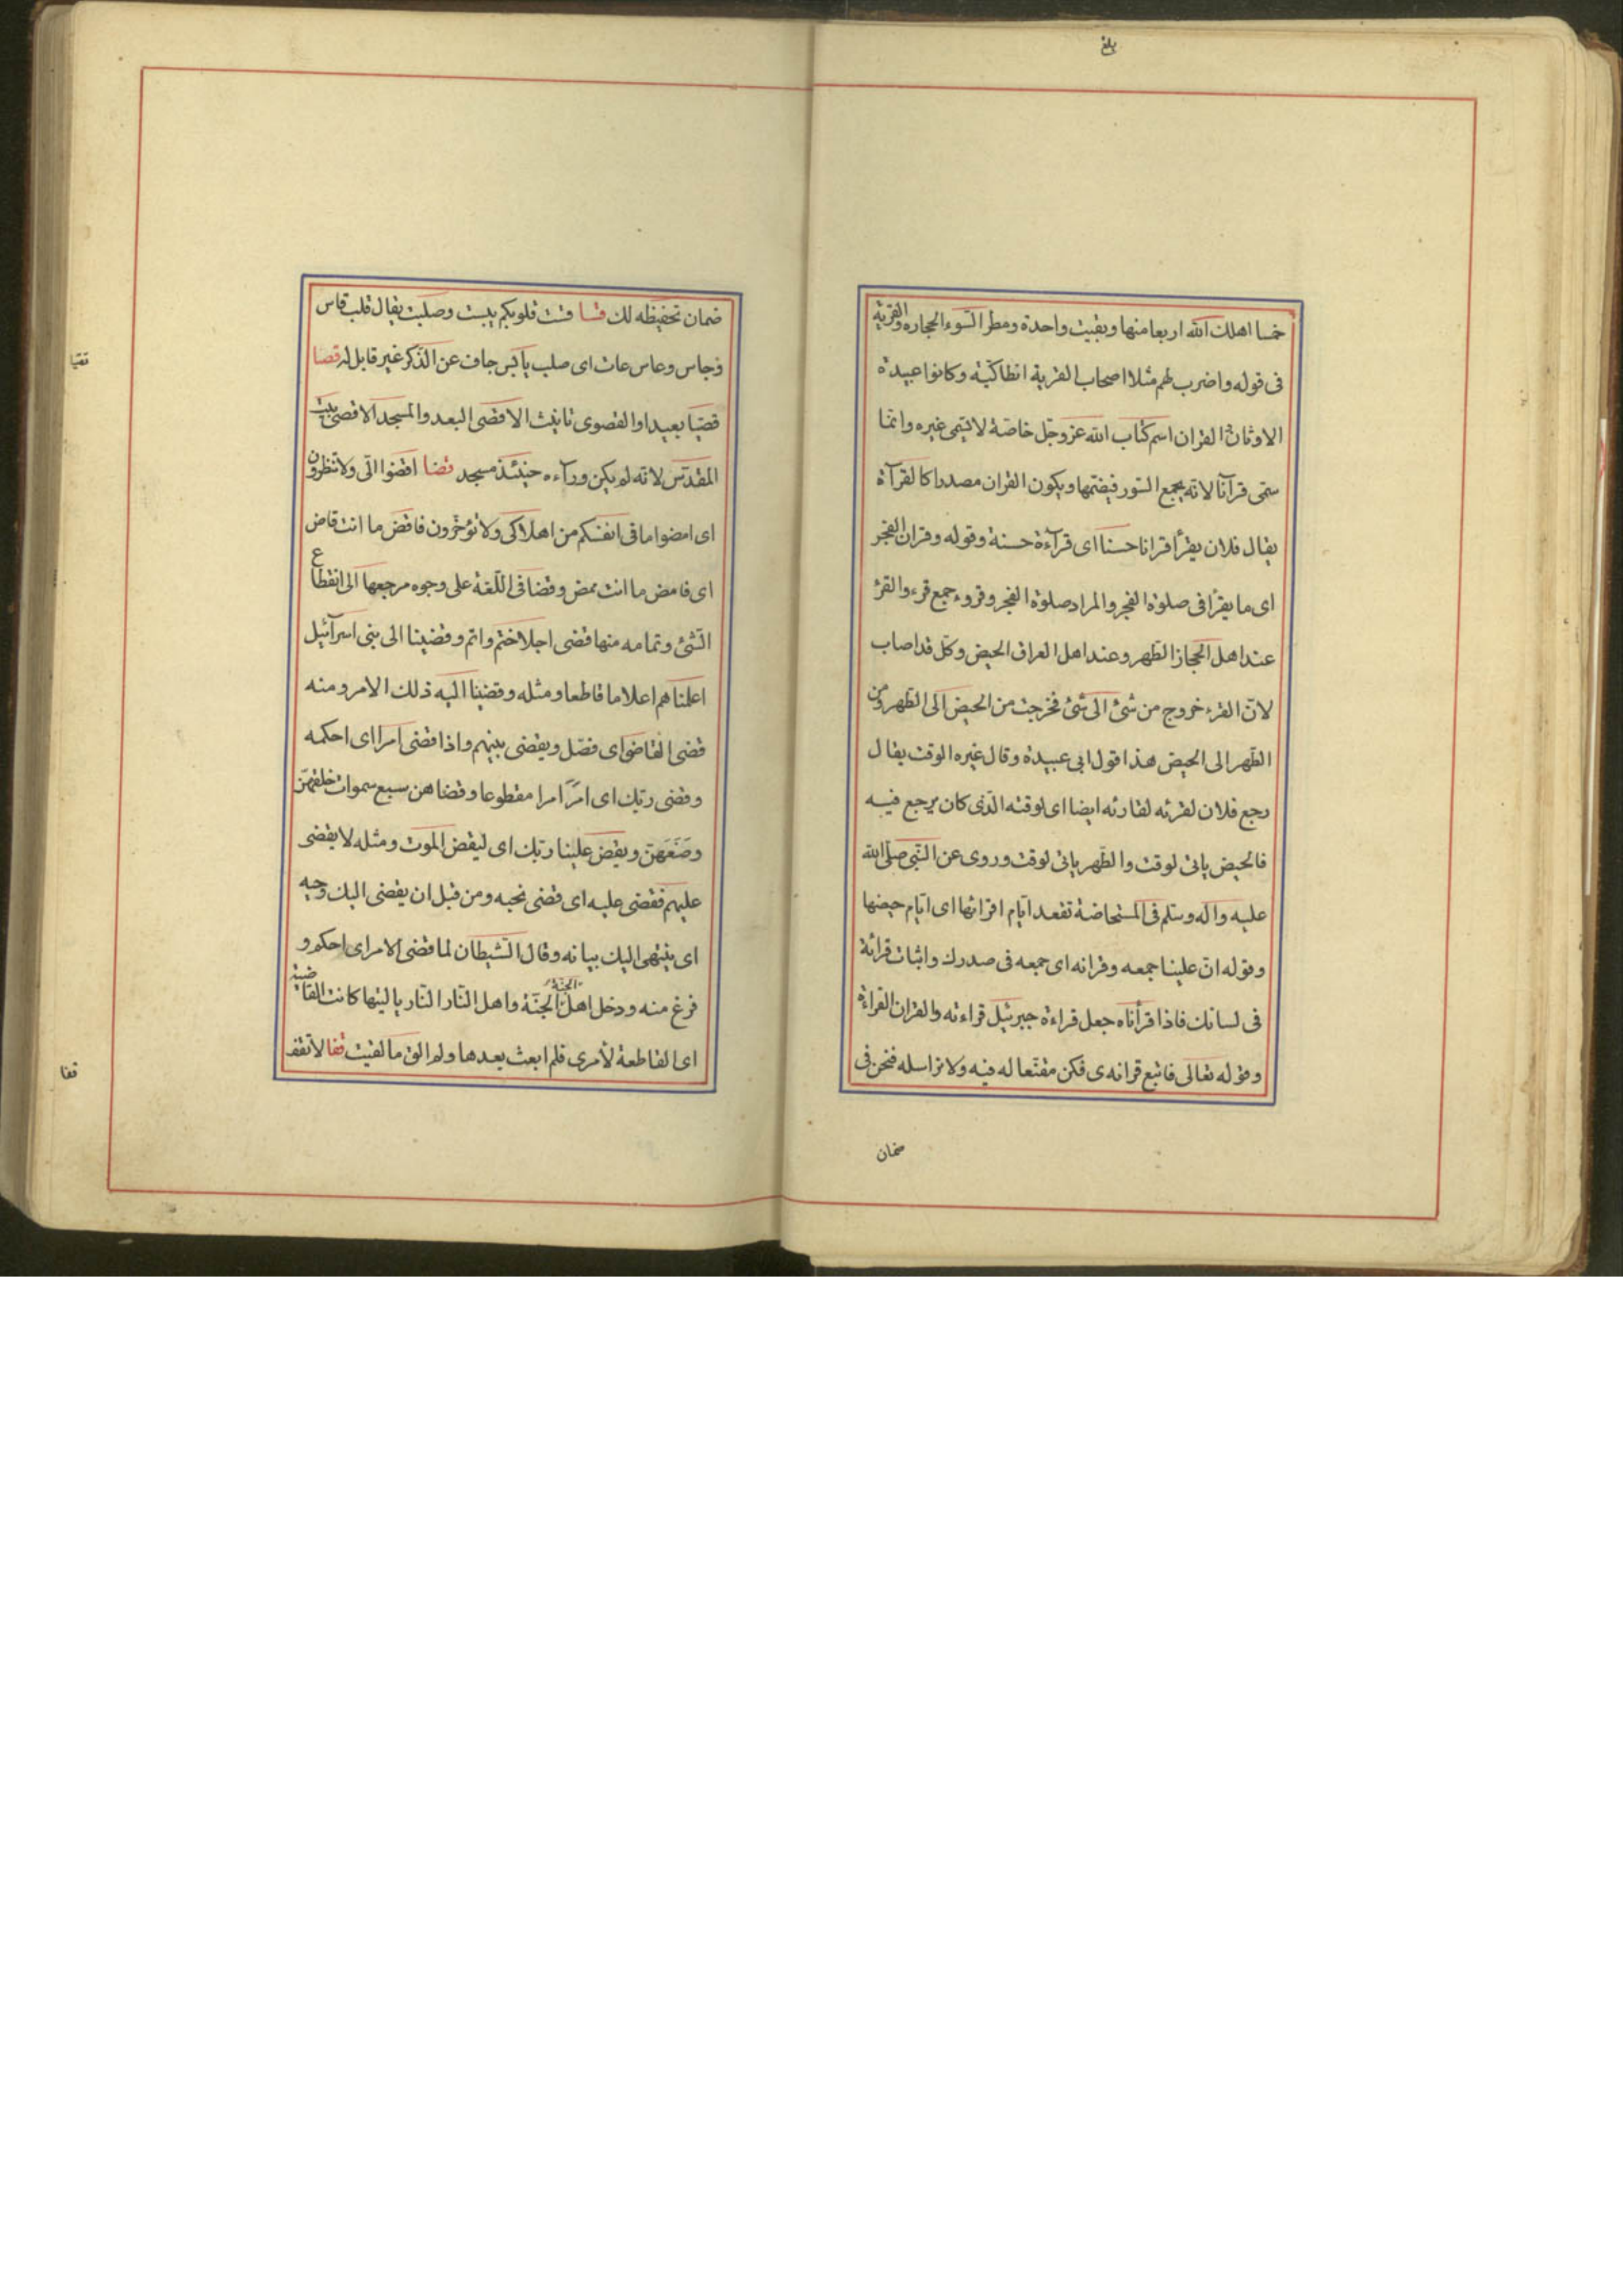 بلغ
خمسا اهلك الله اربعا منها وبقيت واحدة ومطر السوء الحجاره والقرية
فى قوله واضرب لهم مثلا اصحاب القرية انطاكيّة وكانوا عبدة
الاوثان القران اسم كتاب الله عز وجّل خاصّة لا يسمّى غيره وانّما
سمّى قرآنا لانّه يجمع السّور فيضمّها ويكون القران مصدرا كالقرآة
يقال فلان يقرأ قرانا حسنا اى قرآءة حسنة وقوله وقران الفجر
اى ما يقرأ فى صلوة الفجر والمراد صلوة الفجر وقروء جمع قرء والقرؤ
عند اهل الحجاز الطّهر وعند اهل العراق الحيض وكلّ قد اصاب
لانّ القرء خروج من شئ الى شئ فخرجت من الحيض الى الطّهر ومن
الطّهر الى الحيض هذا قول ابى عبيدة وقال غيره الوقت يقال
رجع فلان لقرئه لقارئه ايضا اى لوقته الّذى كان يرجع فيه
فالحيض ياتى لوقت والطّهر ياتى لوقت وروى عن النّبى صلّى الله
عليه واله وسلم فى المستحاضة تقعد ايّام اقرائها اى ايّام حيضها
وقوله انّ علينا جمعه وقرانه اى جمعه فى صدرك واثبات قرائة
فى لسانك فاذا قرأناه جعل قراءة جبرئيل قراءته والقران القراءة
وقوله تعالى فاتبع قرانه ى فكن مقفّعا له فيه ولا تراسله فنحن فى
ضمان
ضمان تحفيظه لك قسا قست قلوبكم يبست وصلبت يقال قلب قاس
وجاس وعاس عات اى صلب يابس جاف عن الذّكر غير قابل له قصا
قصيّا بعيدا والقصوى تانيث الاقصى البعد والمسجد الاقصى بيت
المقدّس لانّه لم يكن ورآءه حينئذ مسجد قضا اقضوا الىّ ولا تنظرون
اى امضوا ما فى انفسكم من اهلاكى ولا تؤخّرون فاقض ما انت قاض
اى فامض ما انت ممض وقضا فى اللّغة على وجوه مرجعها الى انقطاع
الشّئ وتمامه منها قضى اجلا ختم واتم وقضينا الى بنى اسرآئيل
اعلمناهم اعلاما قاطعا ومثله وقضينا اليه ذلك الامر ومنه
قضى القاضى اى فصّل ويقضى بينهم واذا قضى امرا اى احكمه
وقضى ربّك اى امرّ امرا مقطوعا وقضاهن سبع سموات خلقهنّ
وصَنَعَهنّ ويقض علينا ربّك اى ليقض الموت ومثله لا يقضى
عليهم فقضى عليه اى قضى نحبه ومن قبل ان يقضى اليك وحيه
اى ينتهى اليك بيانه وقال الشّيطان لما قضى الامر اى احكم و
فرغ منه ودخل اهل الجنّة الجنّة واهل النّار النّار يا ليتها كانت القاضية
اى القاطعة لأمرى فلم ابعث بعدها ولم الق ما لقيت قفا لا تقف
قفا